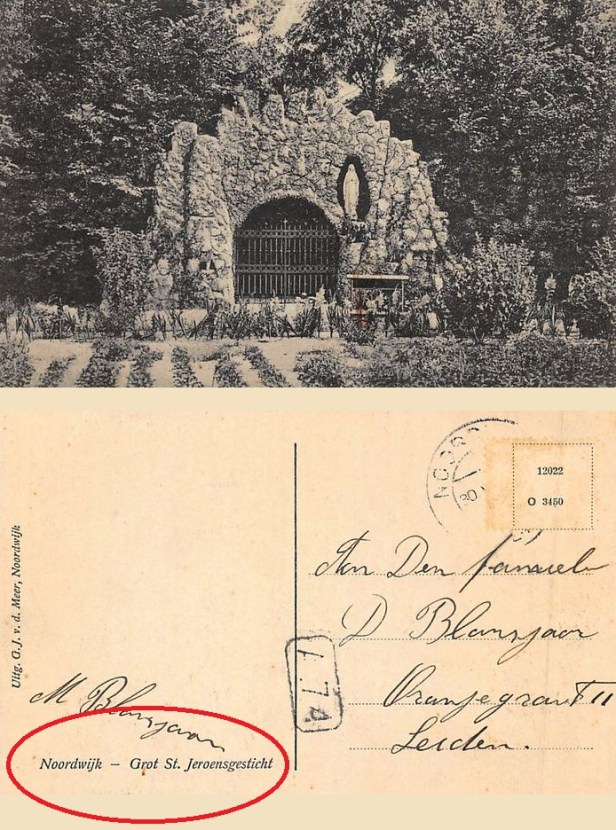 NOORD
12022
O 3450
Aan Den
D Blansjaar
Oranjegracht 11
Leiden.
Uitg. G.J. v. d. Meer, Noordwijk
1.7.4
M Blansjaar
Noordwijk – Grot St. Jeroensgesticht